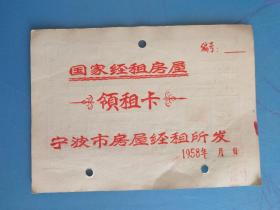 编号：
国家经租房屋
領租卡
宁波市房屋经租所发
1958年 月 日